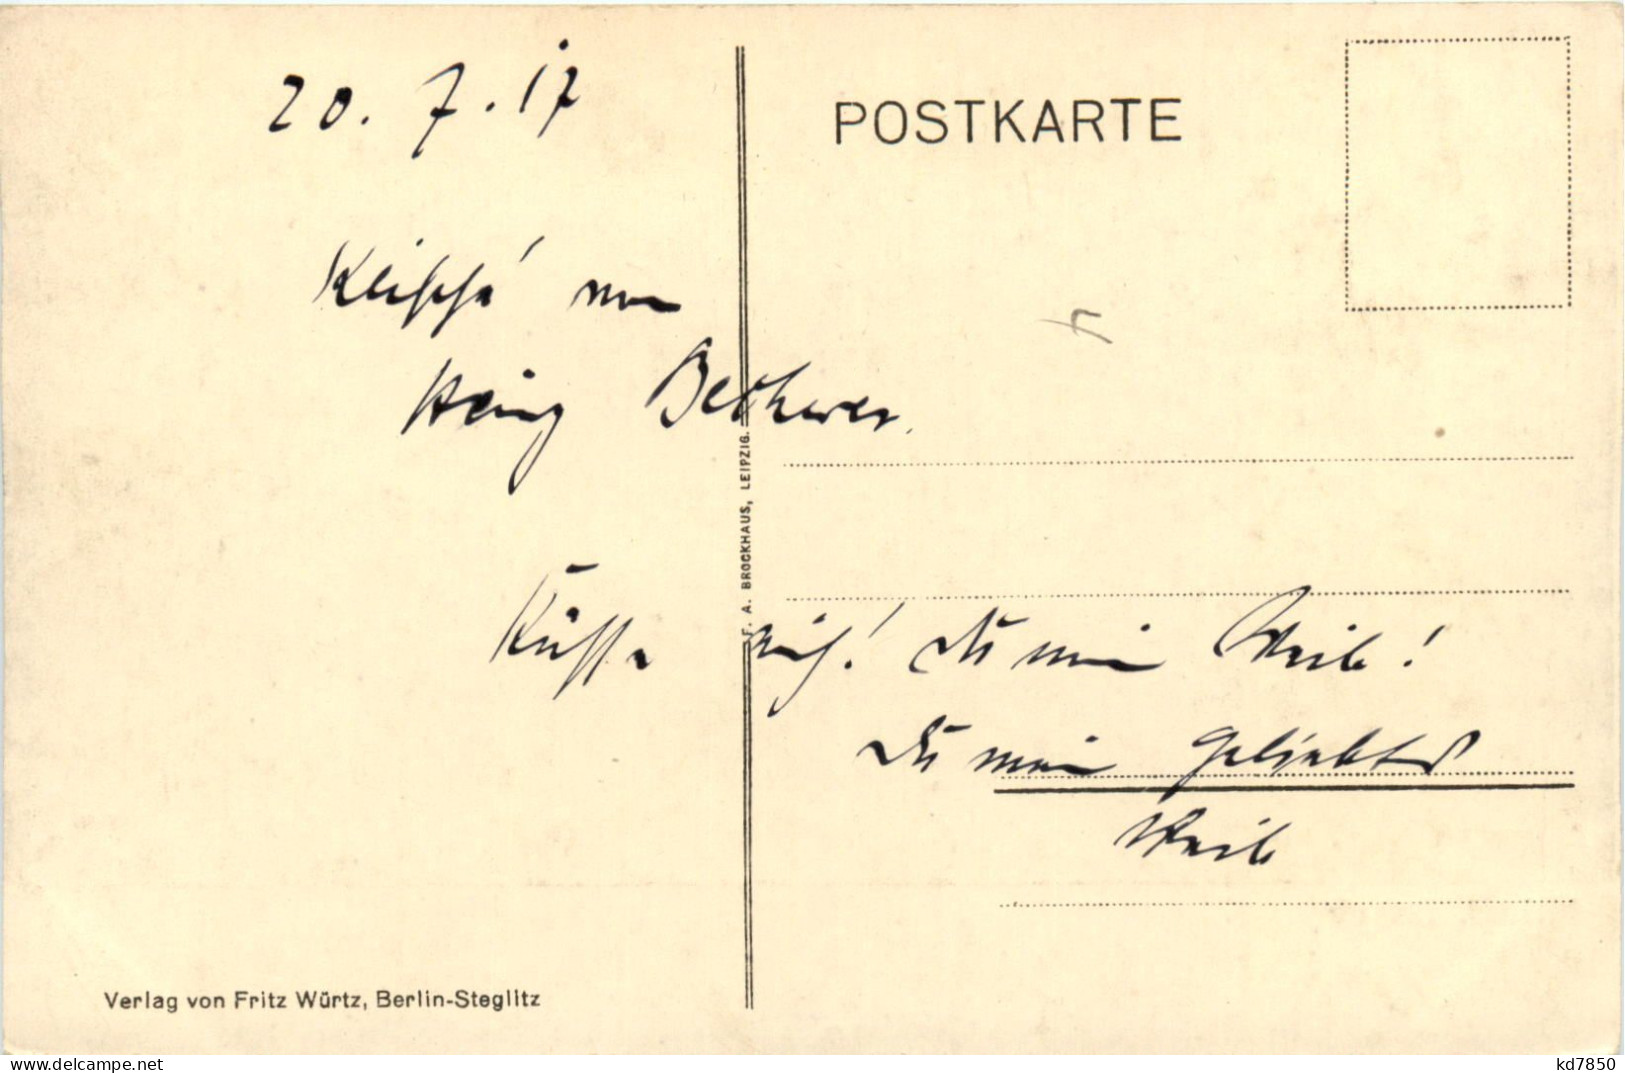 20. 7. 17
POSTKARTE
Klisché von
Heinz
Küsse mich! Du mein Weib!
Du mein geliebtes
Weib
F. A. BROCKHAUS, LEIPZIG.
Verlag von Fritz Würtz, Berlin-Steglitz
www.delcampe.net
kd7850